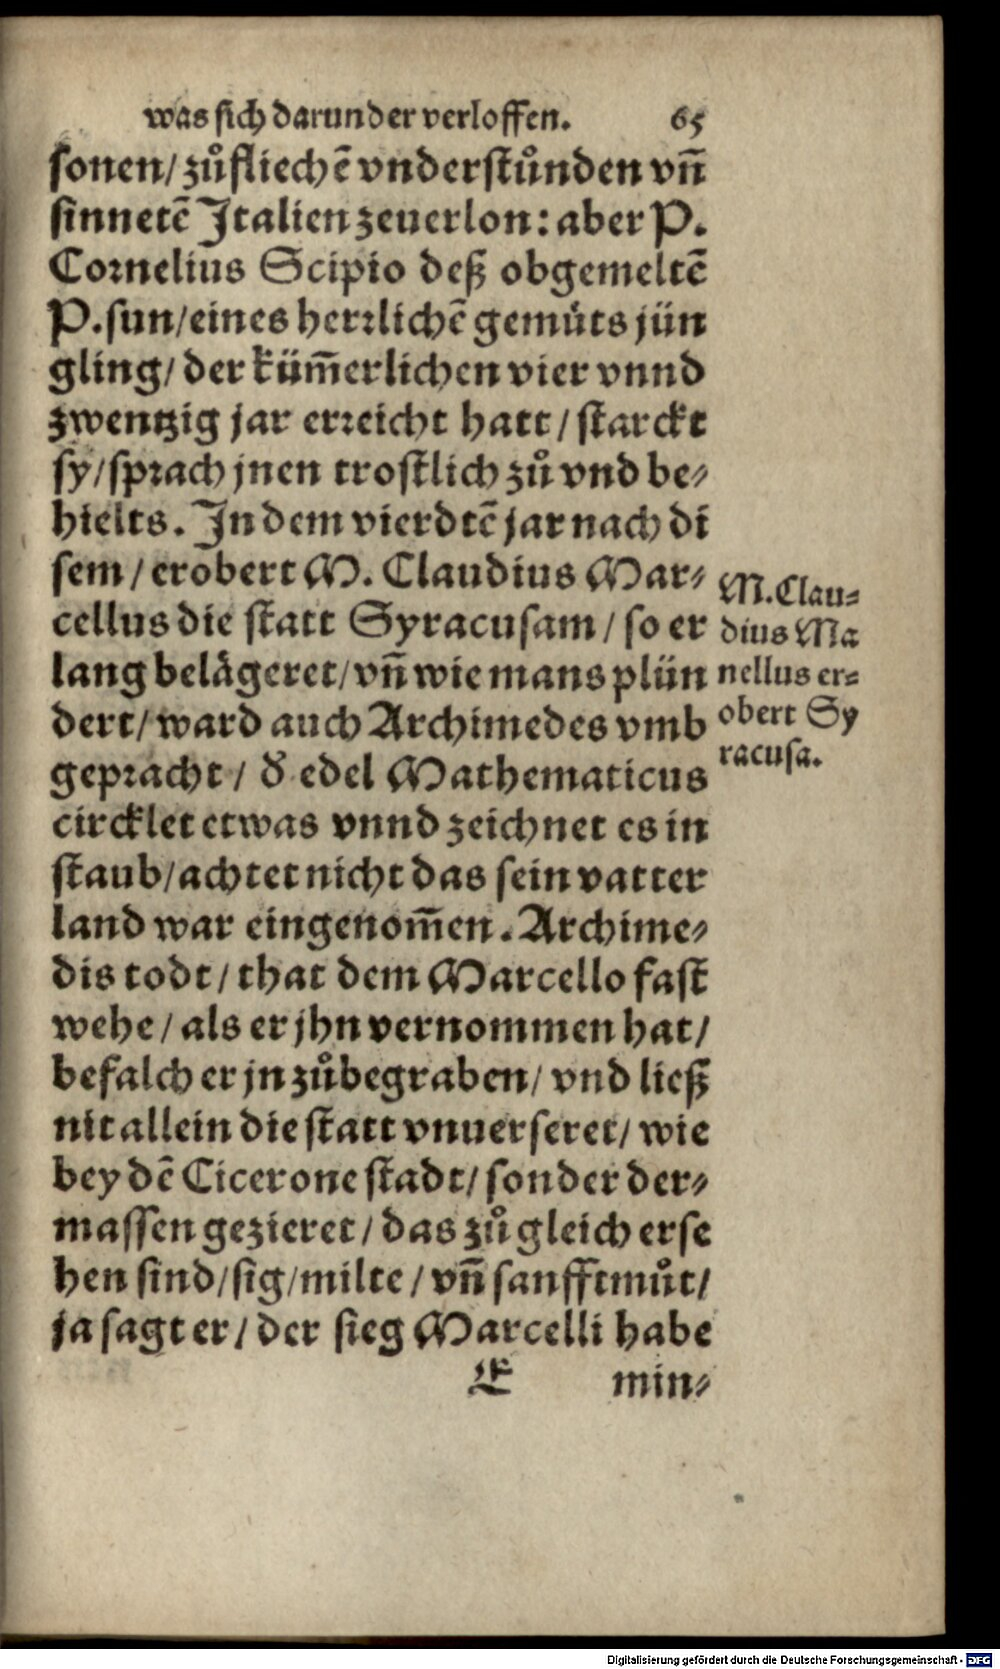 was sich darunder verloffen. 65
sonen/ zůfliechē vnderstůnden vn̄
sinnetē Italien zeuerlon: aber P.
Cornelius Scipio deß obgemeltē
P. sun/ eines herrlichē gemůts jün
gling/ der küm̄erlichen vier vnnd
zwentzig jar erreicht hatt/ starckt
sy/ sprach jnen trostlich zů vnd be⸗
hielts. In dem vierdtē jar nach di
sem/ erobert M. Claudius Mar⸗
cellus die statt Syracusam/ so er
lang belågeret/ vn̄ wie mans plün
dert/ ward auch Archimedes vmb
gepracht/ d̕ edel Mathematicus
circklet etwas vnnd zeichnet es in
staub/ achtet nicht das sein vatter
land war eingenom̄en. Archime⸗
dis todt/ that dem Marcello fast
wehe/ als er jhn vernommen hat/
befalch er jn zůbegraben/ vnd ließ
nit allein die statt vnuerseret/ wie
bey dē Cicerone stadt/ sonder der⸗
massen gezieret/ das zů gleich erse
hen sind/ sig/ milte/ vn̄ sanfftmůt/
ja sagt er/ der sieg Marcelli habe
E min⸗
M. Clau⸗
dius Ma
nellus er⸗
obert Sy
racusa.
Digitalisierung gefördert durch die Deutsche Forschungsgemeinschaft - DFG